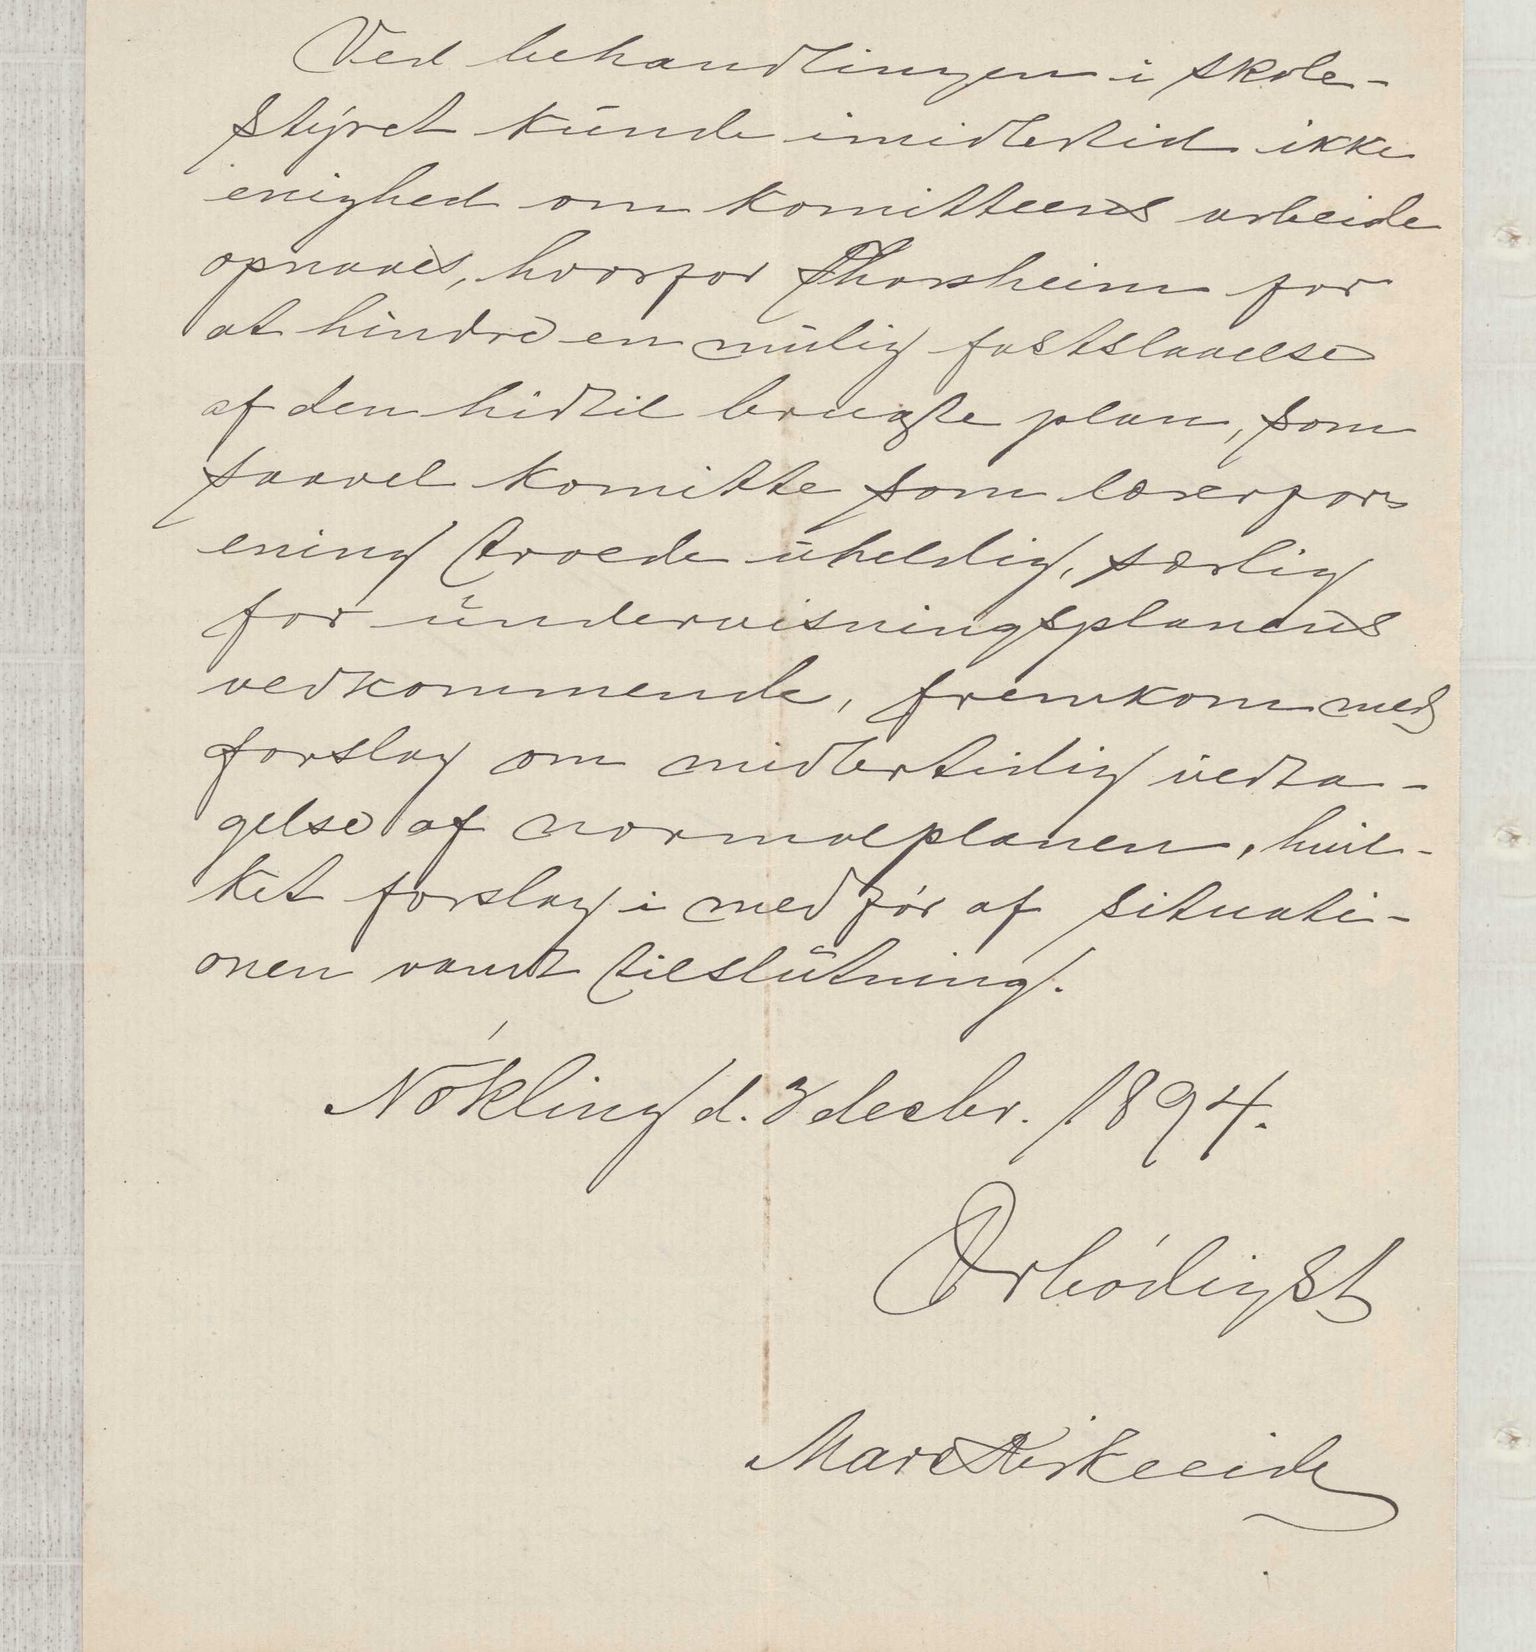 Ved behandlingen i skole-
styret kunde imidlertid ikke
enighed om komitteens arbeide
opnaaes, hvorfor Thorsheim for
at hindre en mulig fastslaaelse
af den hidtil brugte plan, som
saavel komitte som lærerfor
ening troede uheldig, særlig
for undervisningsplanens
vedkommende, fremkom med
forslag om midlertidig vedta-
gelse af normalplanen, hvil-
ket forslag i medfør af situati-
onen vandt tilslutning.
Nökling d. 3 decbr. 1894.
Ærbödigst
Kirkeeide